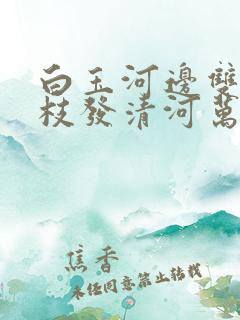 白玉河邊雙
枝發清河萬
焦香
未经同意禁止转载